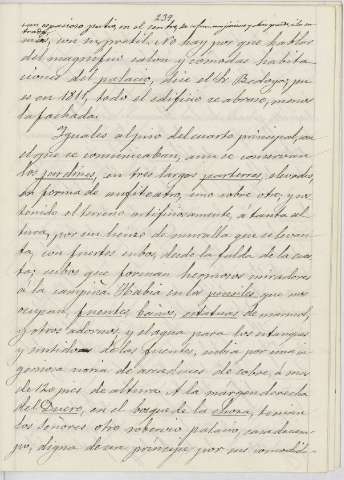 239
un espacioso patio, en el centro,
nas, con su pretil. No hay por que hablar
del magnífico salon y comodas habita
ciones del palacio, dice el Sr Bedoya; pu
es en 1811, todo el edificio se abrasó, menos
la fachada.
Iguales al piso del cuarto principal, con
el que se comunicaban, aun se conservan
los jardines, en tres largos parterres, elevados,
en forma de anfiteatro, uno sobre otro, y so
tenido el terreno artificiosamente, a tanta al
tura, por un lienzo de muralla que se levan
ta, con fuertes cubos desde la falda de la cues
ta; cubos que forman hermosos miradores
á la campiña. Habia en los pensiles que nos
ocupan, fuentes, baños, estatuas de marmol,
y otros adornos, y el agua para los estanques
y surtidos de las fuentes, subia por una in
geniosa noria de arcaduces de cobre, á mas
de 120 pies de altura. A la margen derecha
del Duero, en el bosque de la tenian
los Señores otro palacio, casa de cam
po, digna de un principe por sus comodida-